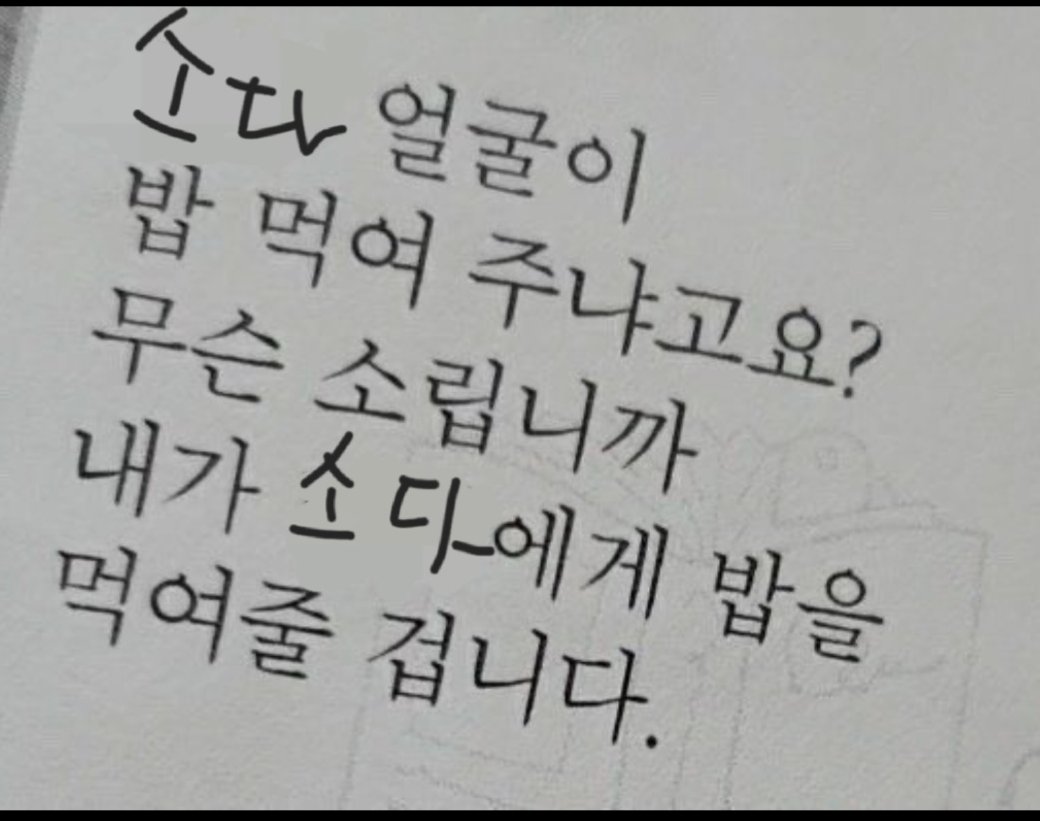 소다 얼굴이
밥 먹여 주냐고요?
무슨 소립니까
내가 소다에게 밥을
먹여줄 겁니다.